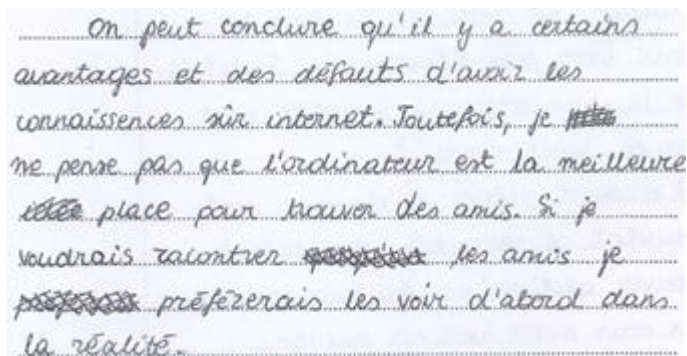 On peut conclure qu'il y a certains
avantages et des défauts d'avoir les
connaissences sûr internet. Toutefois, je
ne pense pas que l'ordinateur est la meilleure
place pour trouver des amis. Si je
voudrais racontrer les amis je
préférerais les voir d'abord dans
la réalité.